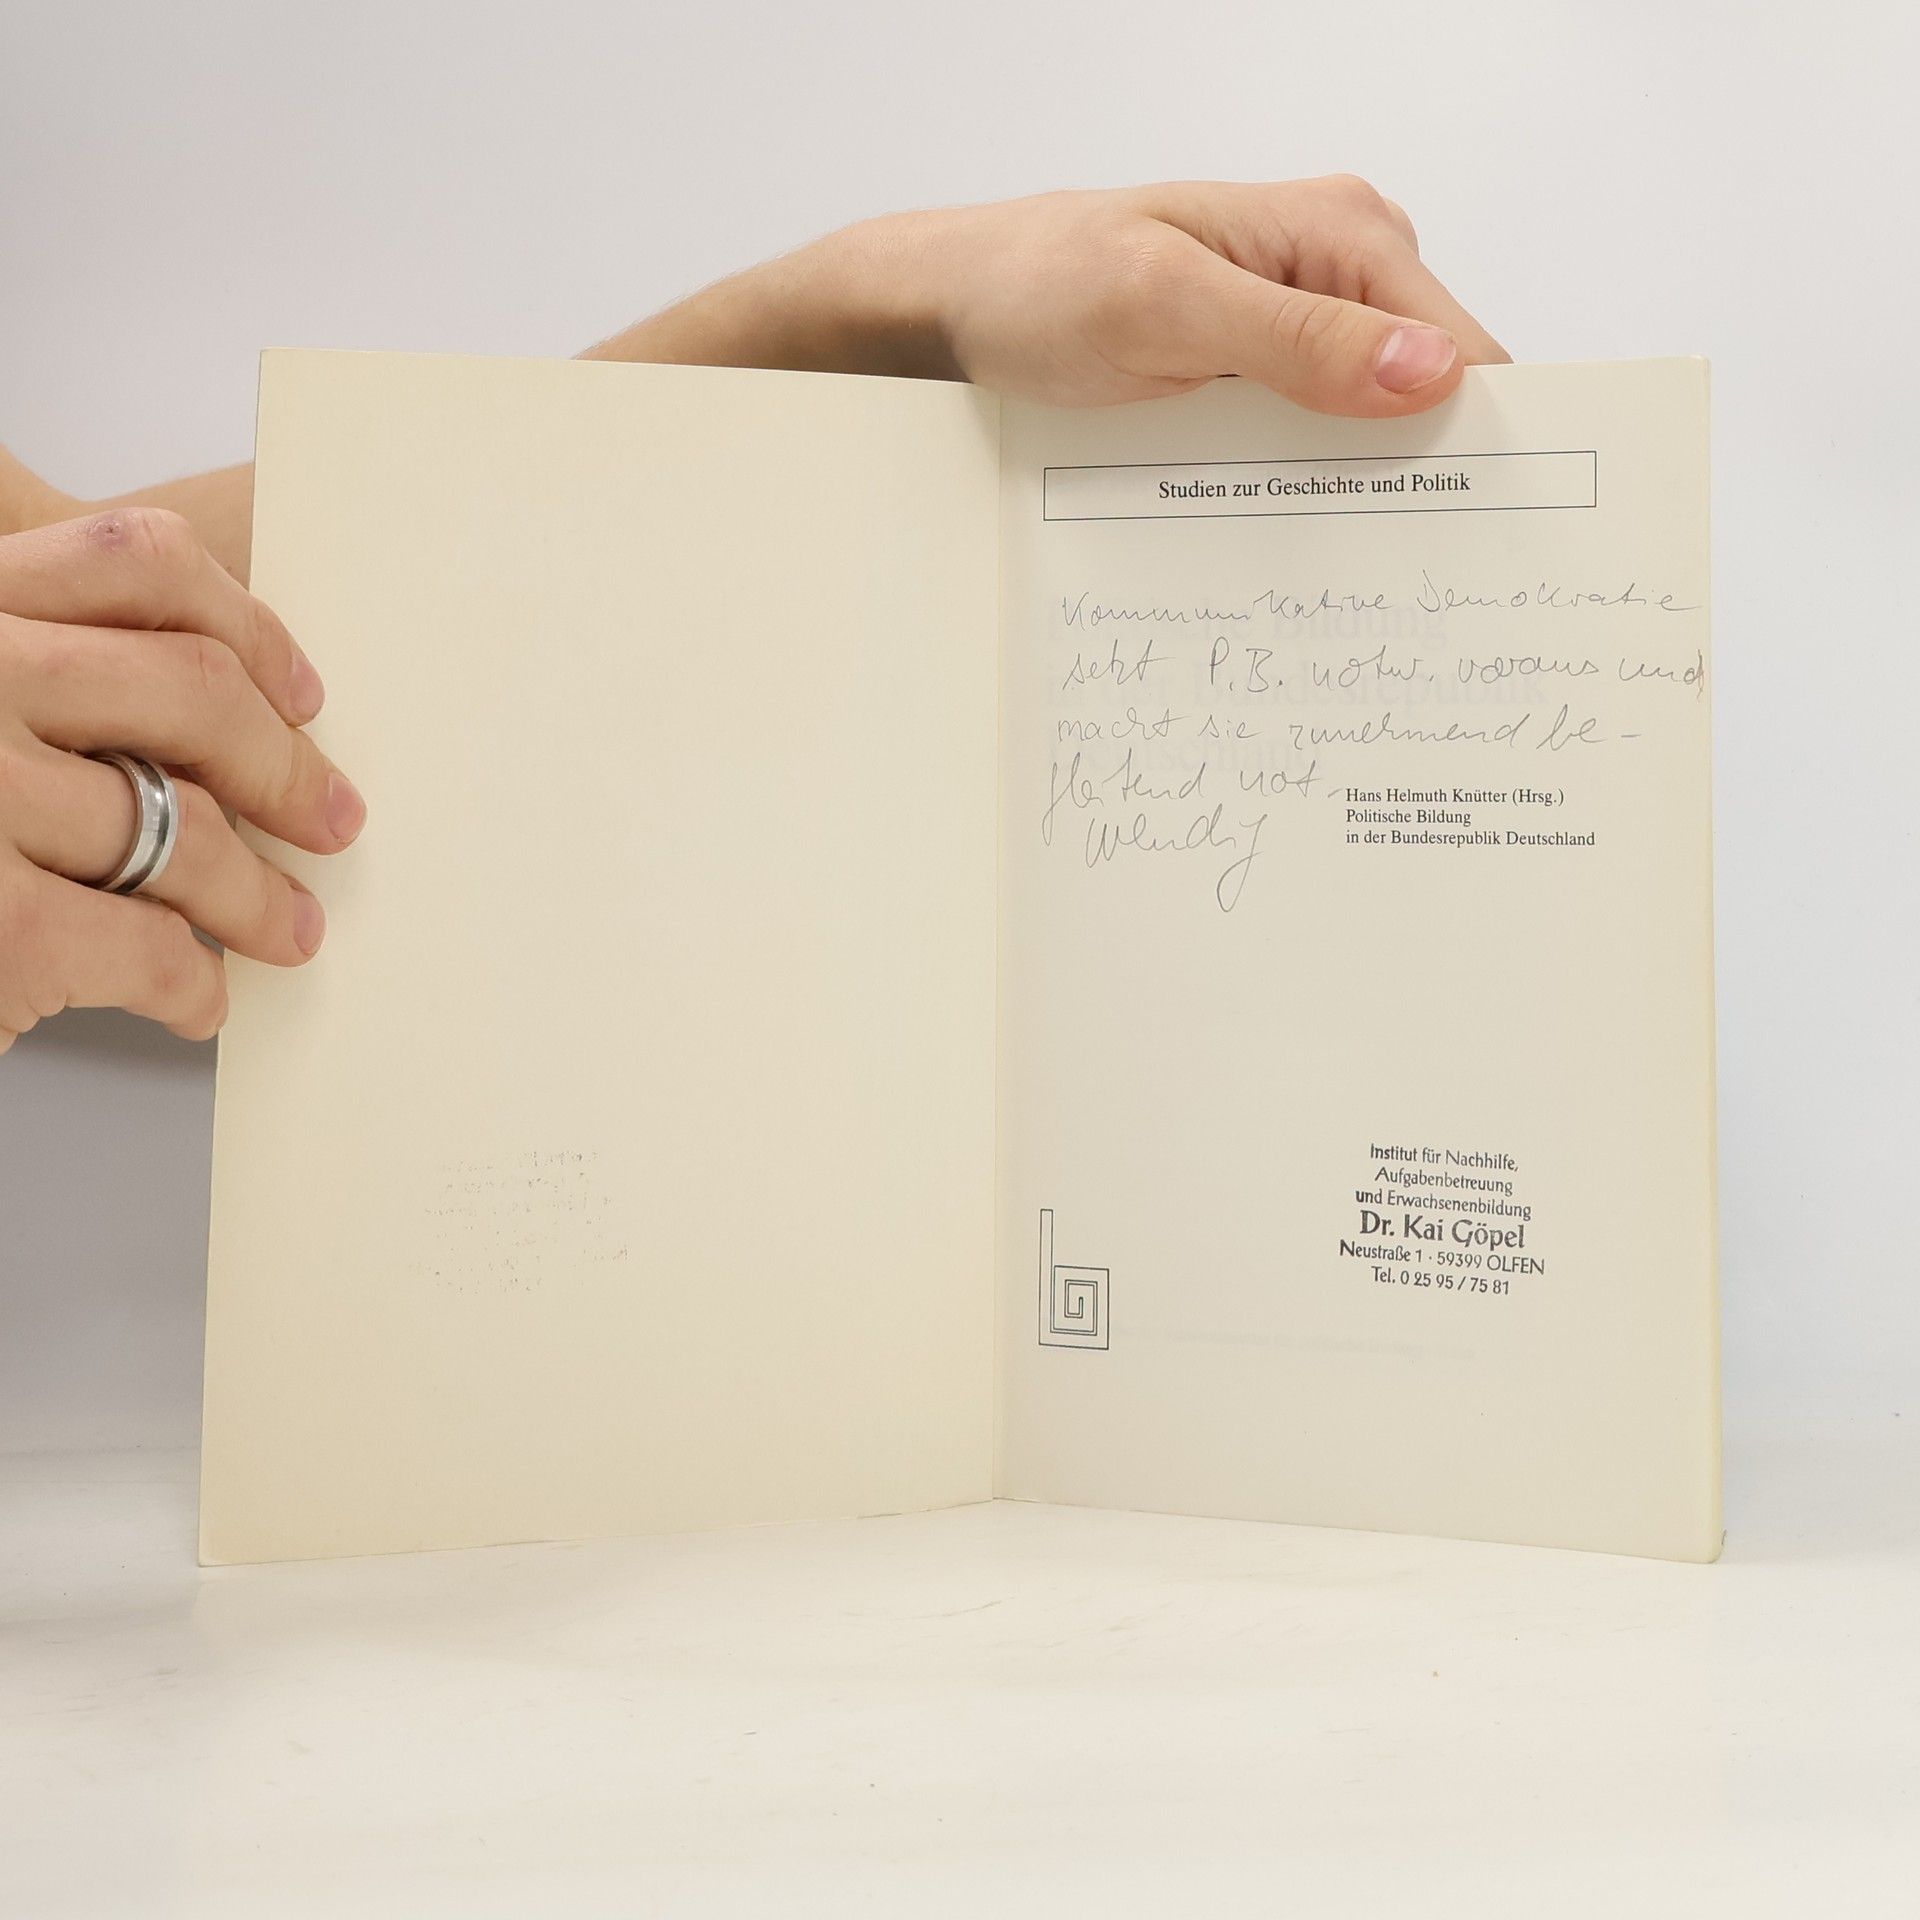 Studien zur Geschichte und Politik
Kommunikative Demokratie
setzt P.B. notw. voraus und
macht sie zunehmend be-
gleitend not-
wendig
Hans Helmuth Knütter (Hrsg.)
Politische Bildung
in der Bundesrepublik Deutschland
Institut für Nachhilfe,
Aufgabenbetreuung
und Erwachsenenbildung
Dr. Kai Göpel
Neustraße 1 · 59399 OLFEN
Tel. 0 25 95 / 75 81